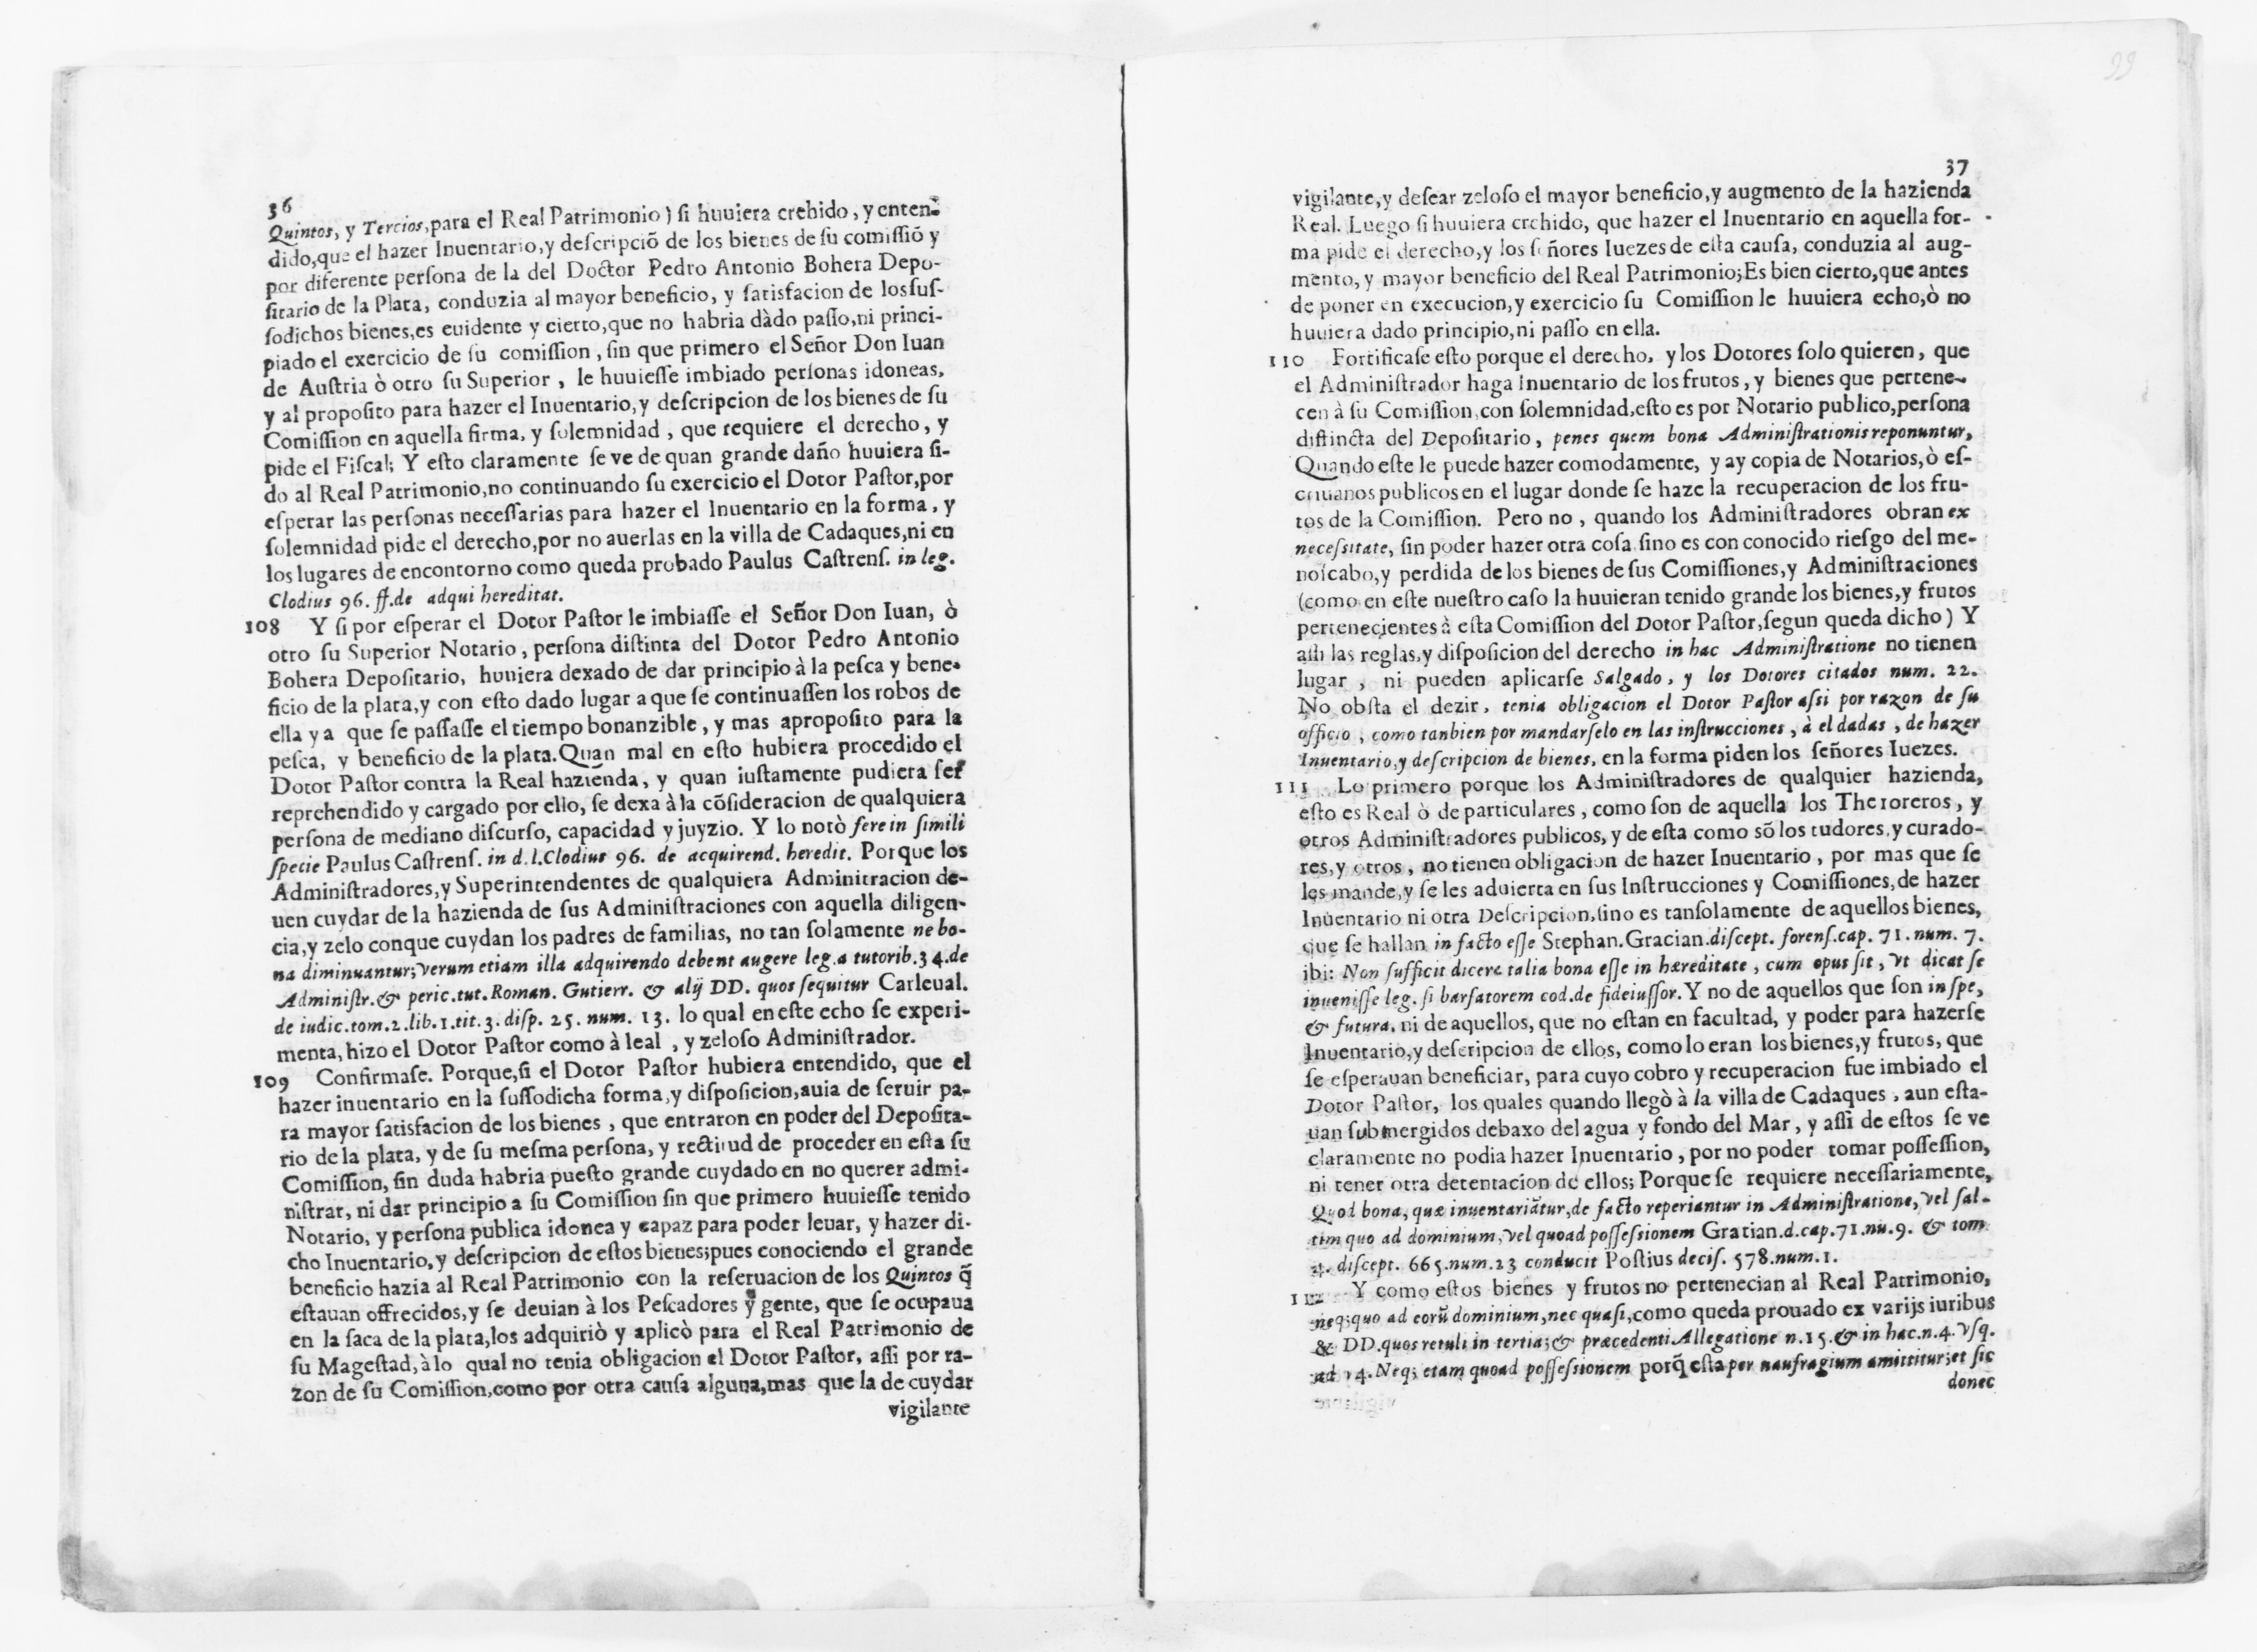 36
Quintos, y Tercios,para el Real Patrimonio) ſi huuiera crehido, y enten-
dido,que el hazer Inuentario,y deſcripciõ de los bienes de ſu comiſſiõ y
por diferente perſona de la del Doctor Pedro Antonio Bohera Depo-
ſitario de la Plata, conduzia al mayor beneficio, y ſatisfacion de los ſuſ-
ſodichos bienes,es euidente y cierto,que no habria dàdo paſſo,ni princi-
piado el exercicio de ſu comiſſion, ſin que primero el Señor Don Iuan
de Auſtria ò otro ſu Superior, le huuieſſe imbiado perſonas idoneas,
y al propoſito para hazer el Inuentario,y deſcripcion de los bienes de ſu
Comiſſion en aquella firma, y ſolemnidad, que requiere el derecho, y
pide el Fiſcal; Y eſto claramente ſe ve de quan grande daño huuiera ſi-
do al Real Patrimonio,no continuando ſu exercicio el Dotor Paſtor,por
eſperar las perſonas neceſſarias para hazer el Inuentario en la forma, y
ſolemnidad pide el derecho,por no auerlas en la villa de Cadaques,ni en
los lugares de encontorno como queda probado Paulus Caſtrenſ. in leg.
Clodius 96. ff.de adqui hereditat.
108 Y ſi por eſperar el Dotor Paſtor le imbiaſſe el Señor Don Iuan, ò
otro ſu Superior Notario, perſona diſtinta del Dotor Pedro Antonio
Bohera Depoſitario, huuiera dexado de dar principio à la peſca y bene-
ficio de la plata,y con eſto dado lugar a que ſe continuaſſen los robos de
ella y a que ſe paſſaſſe el tiempo bonanzible, y mas apropoſito para la
peſca, y beneficio de la plata.Quan mal en eſto hubiera procedido el
Dotor Paſtor contra la Real hazienda, y quan iuſtamente pudiera ſer
reprehendido y cargado por ello, ſe dexa à la cõſideracion de qualquiera
perſona de mediano diſcurſo, capacidad y juyzio. Y lo notò fere in ſimili
ſpecie Paulus Caſtrenſ. in d.l.Clodius 96. de acquirend. heredit. Porque los
Adminiſtradores,y Superintendentes de qualquiera Adminitracion de-
uen cuydar de la hazienda de ſus Adminiſtraciones con aquella diligen-
cia,y zelo conque cuydan los padres de familias, no tan ſolamente ne bo-
na diminuantur; verum etiam illa adquirendo debent augere leg.a tutorib.34.de
Adminiſtr.& peric.tut.Roman. Gutierr. & alij DD. quos ſequitur Carleual.
de iudic.tom.2.lib.1.tit.3. diſp. 25. num. 13. lo qual en eſte echo ſe experi-
menta, hizo el Dotor Paſtor como à leal, y zeloſo Adminiſtrador.
109 Confirmaſe. Porque,ſi el Dotor Paſtor hubiera entendido, que el
hazer inuentario en la ſuſſodicha forma,y diſpoſicion,auia de ſeruir pa-
ra mayor ſatisfacion de los bienes, que entraron en poder del Depoſita-
rio de la plata, y de ſu meſma perſona, y rectitud de proceder en eſta ſu
Comiſſion, ſin duda habria pueſto grande cuydado en no querer admi-
niſtrar, ni dar principio a ſu Comiſſion ſin que primero huuieſſe tenido
Notario, y perſona publica idonea y capaz para poder leuar, y hazer di-
cho Inuentario,y deſcripcion de eſtos bienes;pues conociendo el grande
beneficio hazia al Real Patrimonio con la reſeruacion de los Quintos q̃
eſtauan offrecidos,y ſe deuian à los Peſcadores y gente, que ſe ocupaua
en la ſaca de la plata,los adquiriò y aplicò para el Real Patrimonio de
ſu Mageſtad,à lo qual no tenia obligacion el Dotor Paſtor, aſſi por ra-
zon de ſu Comiſſion,como por otra cauſa alguna,mas que la de cuydar
vigilante
99
37
vigilante,y deſear zeloſo el mayor beneficio,y augmento de la hazienda
Real. Luego ſi huuiera crehido, que hazer el Inuentario en aquella for-
ma pide el derecho,y los ſeñores Iuezes de eſta cauſa, conduzia al aug-
mento, y mayor beneficio del Real Patrimonio;Es bien cierto,que antes
de poner en execucion,y exercicio ſu Comiſſion le huuiera echo,ò no
huuiera dado principio,ni paſſo en ella.
110 Fortificaſe eſto porque el derecho, y los Dotores ſolo quieren, que
el Adminiſtrador haga Inuentario de los frutos, y bienes que pertene-
cen à ſu Comiſſion,con ſolemnidad,eſto es por Notario publico,perſona
diſtincta del Depoſitario, penes quem bona Adminiſtrationis reponuntur,
Quando eſte le puede hazer comodamente, y ay copia de Notarios, ò eſ-
criuanos publicos en el lugar donde ſe haze la recuperacion de los fru-
tos de la Comiſſion. Pero no, quando los Adminiſtradores obran ex
neceſsitate, ſin poder hazer otra coſa ſino es con conocido rieſgo del me-
noſcabo,y perdida de los bienes de ſus Comiſſiones,y Adminiſtraciones
(como en eſte nueſtro caſo la huuieran tenido grande los bienes,y frutos
pertenecientes à eſta Comiſſion del Dotor Paſtor,ſegun queda dicho) Y
aſſi las reglas,y diſpoſicion del derecho in hac Adminiſtratione no tienen
lugar, ni pueden aplicarſe Salgado, y los Dotores citados num. 22.
No obſta el dezir, tenia obligacion el Dotor Paſtor aſsi por razon de ſu
officio, como tanbien por mandarſelo en las inſtrucciones, à el dadas, de hazer
Inuentario,y deſcripcion de bienes, en la forma piden los ſeñores Iuezes.
111 Lo primero porque los Adminiſtradores de qualquier hazienda,
eſto es Real ò de particulares, como ſon de aquella los Theroreros, y
otros Adminiſtradores publicos, y de eſta como sõ los tudores,y curado-
res,y otros, no tienen obligacion de hazer Inuentario, por mas que ſe
les mande,y ſe les aduierta en ſus Inſtrucciones y Comiſſiones,de hazer
Inuentario ni otra Deſcripcion,ſino es tanſolamente de aquellos bienes,
que ſe hallan in facto eſſe Stephan.Gracian.diſcept. forenſ.cap. 71.num. 7.
ibi: Non ſufficit dicere talia bona eſſe in hæreditate, cum opus ſit, vt dicat ſe
inueniſſe leg. ſi barſatorem cod.de fideiuſſor.Y no de aquellos que ſon in ſpe,
& futura, ni de aquellos, que no eſtan en facultad, y poder para hazerſe
Inuentario,y deſcripcion de ellos, como lo eran los bienes,y frutos, que
ſe eſperauan beneficiar, para cuyo cobro y recuperacion fue imbiado el
Dotor Paſtor, los quales quando llegò à la villa de Cadaques, aun eſta-
uan ſubmergidos debaxo del agua y fondo del Mar, y aſſi de eſtos ſe ve
claramente no podia hazer Inuentario, por no poder tomar poſſeſſion,
ni tener otra detentacion de ellos; Porque ſe requiere neceſſariamente,
Quod bona, quæ inuentariãtur,de facto reperiantur in Adminiſtratione, vel ſal-
tim quo ad dominium, vel quoad poſſeſsionem Gratian.d.cap.71.nu.9. & tom
4. diſcept. 665.num.23 conducit Poſtius deciſ. 578.num.1.
112 Y como eſtos bienes y frutos no pertenecian al Real Patrimonio,
neq;quo ad eorũ dominium,nec quaſi,como queda prouado ex varijs iuribus
& DD.quos retuli in tertia;& præcedenti Allegatione n.15.& in hac.n.4.vſq.
ad 14.Neq; etam quoad poſſeſsionem porq̃ eſta per naufragium amittitur;et ſic
donec